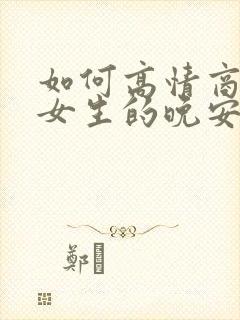 如何高情商
女生的晚安
鄭